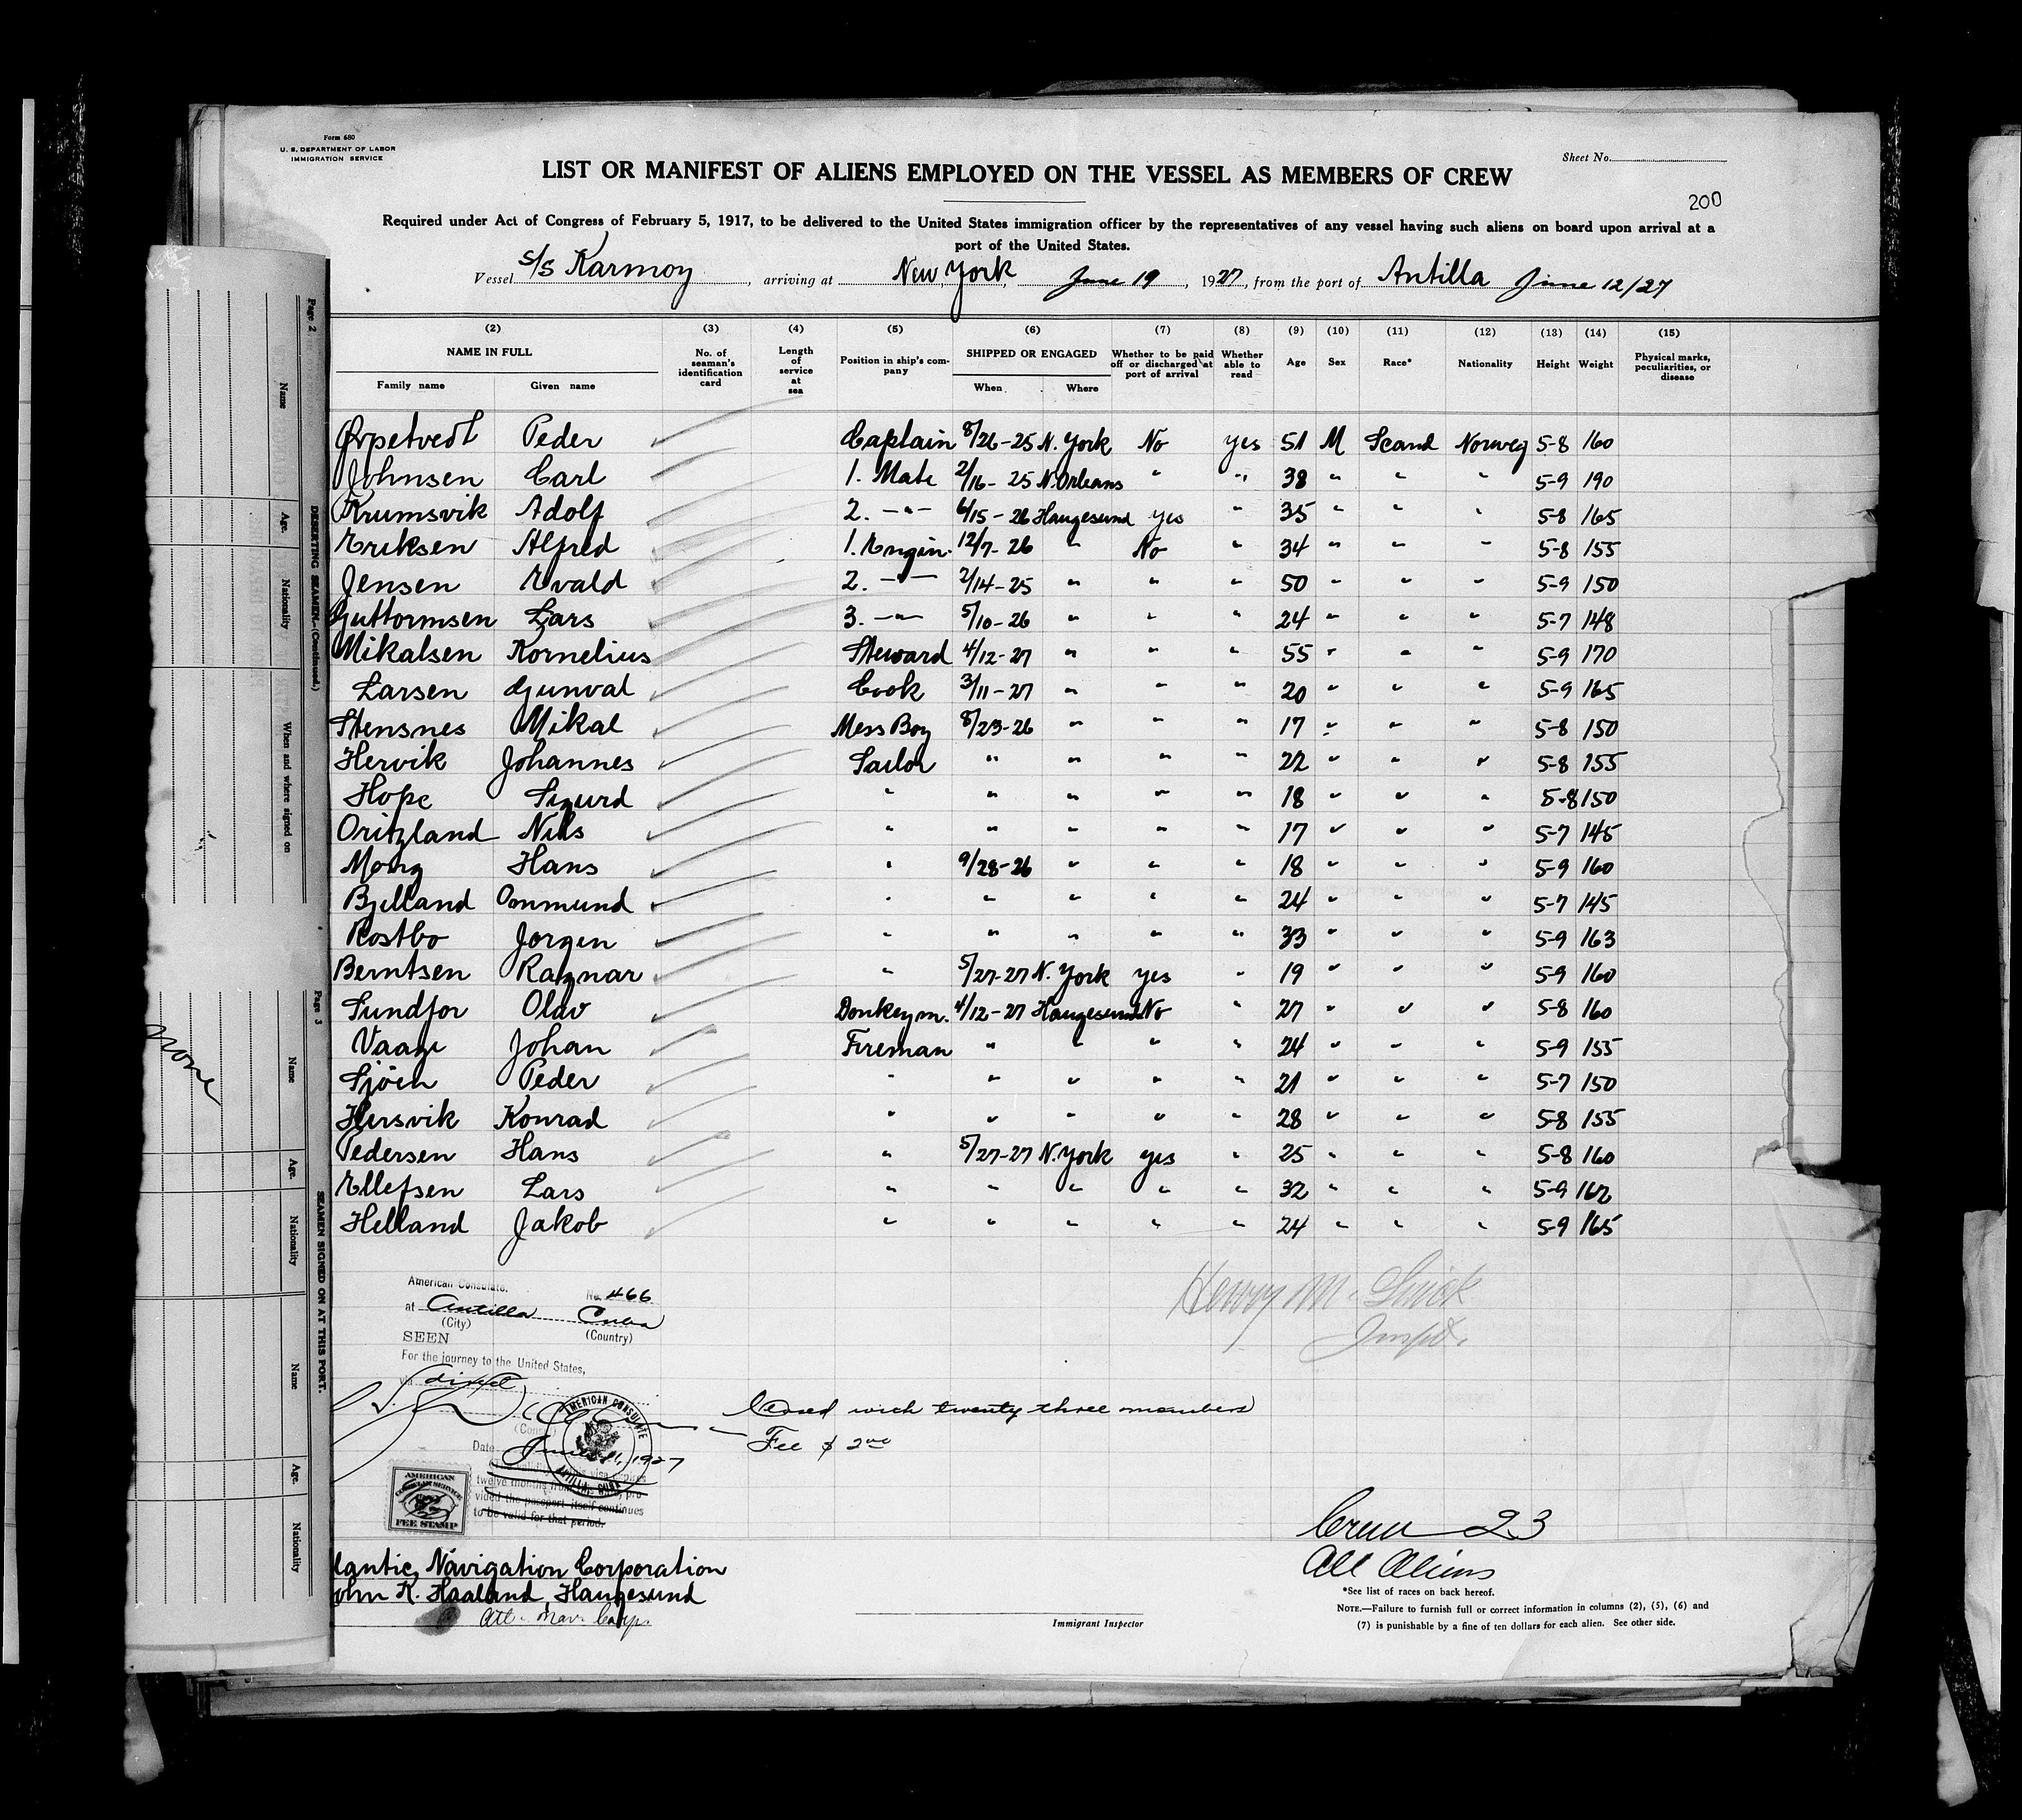 Form 680
U. S. DEPARTMENT OF LABOR
IMMIGRATION SERVICE
Sheet No.
LIST OR MANIFEST OF ALIENS EMPLOYED ON THE VESSEL AS MEMBERS OF CREW
200
Required under Act of Congress of February 5, 1917, to be delivered to the United States immigration officer by the representatives of any vessel having such aliens on board upon arrival at a
port of the United States.
Vessel S/S Karmoy, arriving at New York, June 19, 1927, from the port of Antilla June 12/27
(2) (3) (4) (5) (6) (7) (8) (9) (10) (11) (12) (13) (14) (15)
NAME IN FULL No. of seaman's identification card Length of service at sea Position in ship's company SHIPPED OR ENGAGED Whether to be paid off or discharged at port of arrival Whether able to read Age Sex Race* Nationality Height Weight Physical marks, peculiarities, or disease
Family name Given name When Where
Ørpetvedt Peder Captain 8/26-25 N. York No yes 51 M Scand Norweg 5-8 160
Johnsen Carl 1. Mate 2/16-25 N. Orleans " " 38 " " " 5-9 190
Krumsvik Adolf 2. -"- 6/15-26 Haugesund yes " 35 " " " 5-8 165
Eriksen Alfred 1. Engin. 12/7-26 " No " 34 " " " 5-8 155
Jensen Evald 2. -"- 2/14-25 " " " 50 " " " 5-9 150
Guttormsen Lars 3. -"- 5/10-26 " " " 24 " " " 5-7 148
Mikalsen Kornelius Steward 4/12-27 " " " 55 " " " 5-9 170
Larsen Gunval Cook 3/11-27 " " " 20 " " " 5-9 165
Stensnes Mikal Mess Boy 8/23-26 " " " 17 " " " 5-8 150
Hervik Johannes Sailor " " " " 22 " " " 5-8 155
Hope Sigurd " " " " " 18 " " " 5-8 150
Nils " " " " " 17 " " " 5-7 145
Hans " 9/28-26 " " " 18 " " " 5-9 160
Bjelland Ommund " " " " " 24 " " " 5-7 145
Rostbo Jorgen " " " " " 33 " " " 5-9 163
Berntsen Ragnar " 5/27-27 N. York yes " 19 " " " 5-9 160
Sundfor Olav Donkeym. 4/12-27 Haugesund No " 27 " " " 5-8 160
Vaage Johan Fireman " " " " 24 " " " 5-9 155
Sjöen Peder " " " " " 21 " " " 5-7 150
Hersvik Konrad " " " " " 28 " " " 5-8 155
Pedersen Hans " 5/27-27 N. York yes " 25 " " " 5-8 160
Ellefsen Lars " " " " " 32 " " " 5-9 162
Helland Jakob " " " " " 24 " " " 5-9 165
Henry M.
Inspt.
American Consulate.
No. 466
at Antilla Cuba
(City) (Country)
SEEN
For the journey to the United States,
via direct
(Consul)
Date June 11, 1927
AMERICAN CONSULATE
ANTILLA, CUBA
twelve months
vided the passport itself continues
to be valid for that period.
AMERICAN
CONSULAR SERVICE
FEE STAMP
Closed with twenty three members
Fee $ 2.00
Crew 23
All Aliens
lantic Navigation Corporation
ohn K. Haaland, Haugesund
Atl. Nav. Corp.
Immigrant Inspector
*See list of races on back hereof.
NOTE.—Failure to furnish full or correct information in columns (2), (5), (6) and
(7) is punishable by a fine of ten dollars for each alien. See other side.
Page 2
DESERTING SEAMEN.—(Continued.)
Name Age. Nationality When and where signed on
Page 3
SEAMEN SIGNED ON AT THIS PORT.
Name Age. Nationality Name Age. Nationality
none